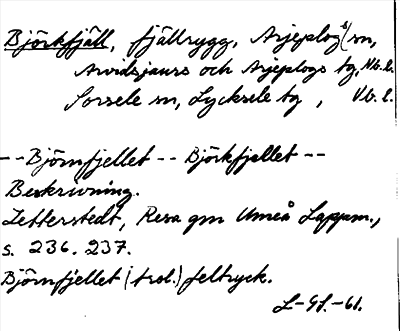 Björkfjäll, fjällrygg, Arjeplog(s) sn,
Arvidsjaurs och Arjeplogs tg, Nb. l.
Sorsele sn, Lycksele tg, Vb. l.
--Björnfjellet -- Björkfjellet --
Beskrivning.
Zetterstedt, Resa gm Umeå Lappm.,
s. 236. 237.
Björnfjellet (trol.) feltryck.
L-Gf.-61.